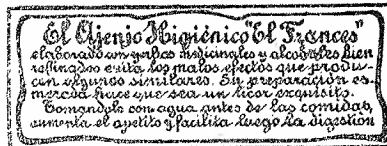 El Ajenjo Higiénico "El Frances"
elaborado con yerbas medicinales y alcoholes bien
reffinados evita los malos efectos que produ-
cen algunos similares. Su preparación es-
merada hace que sea un licor exquisito.
Tomandolo con agua antes de las comidas,
aumenta el apetito y facilita luego la digestión